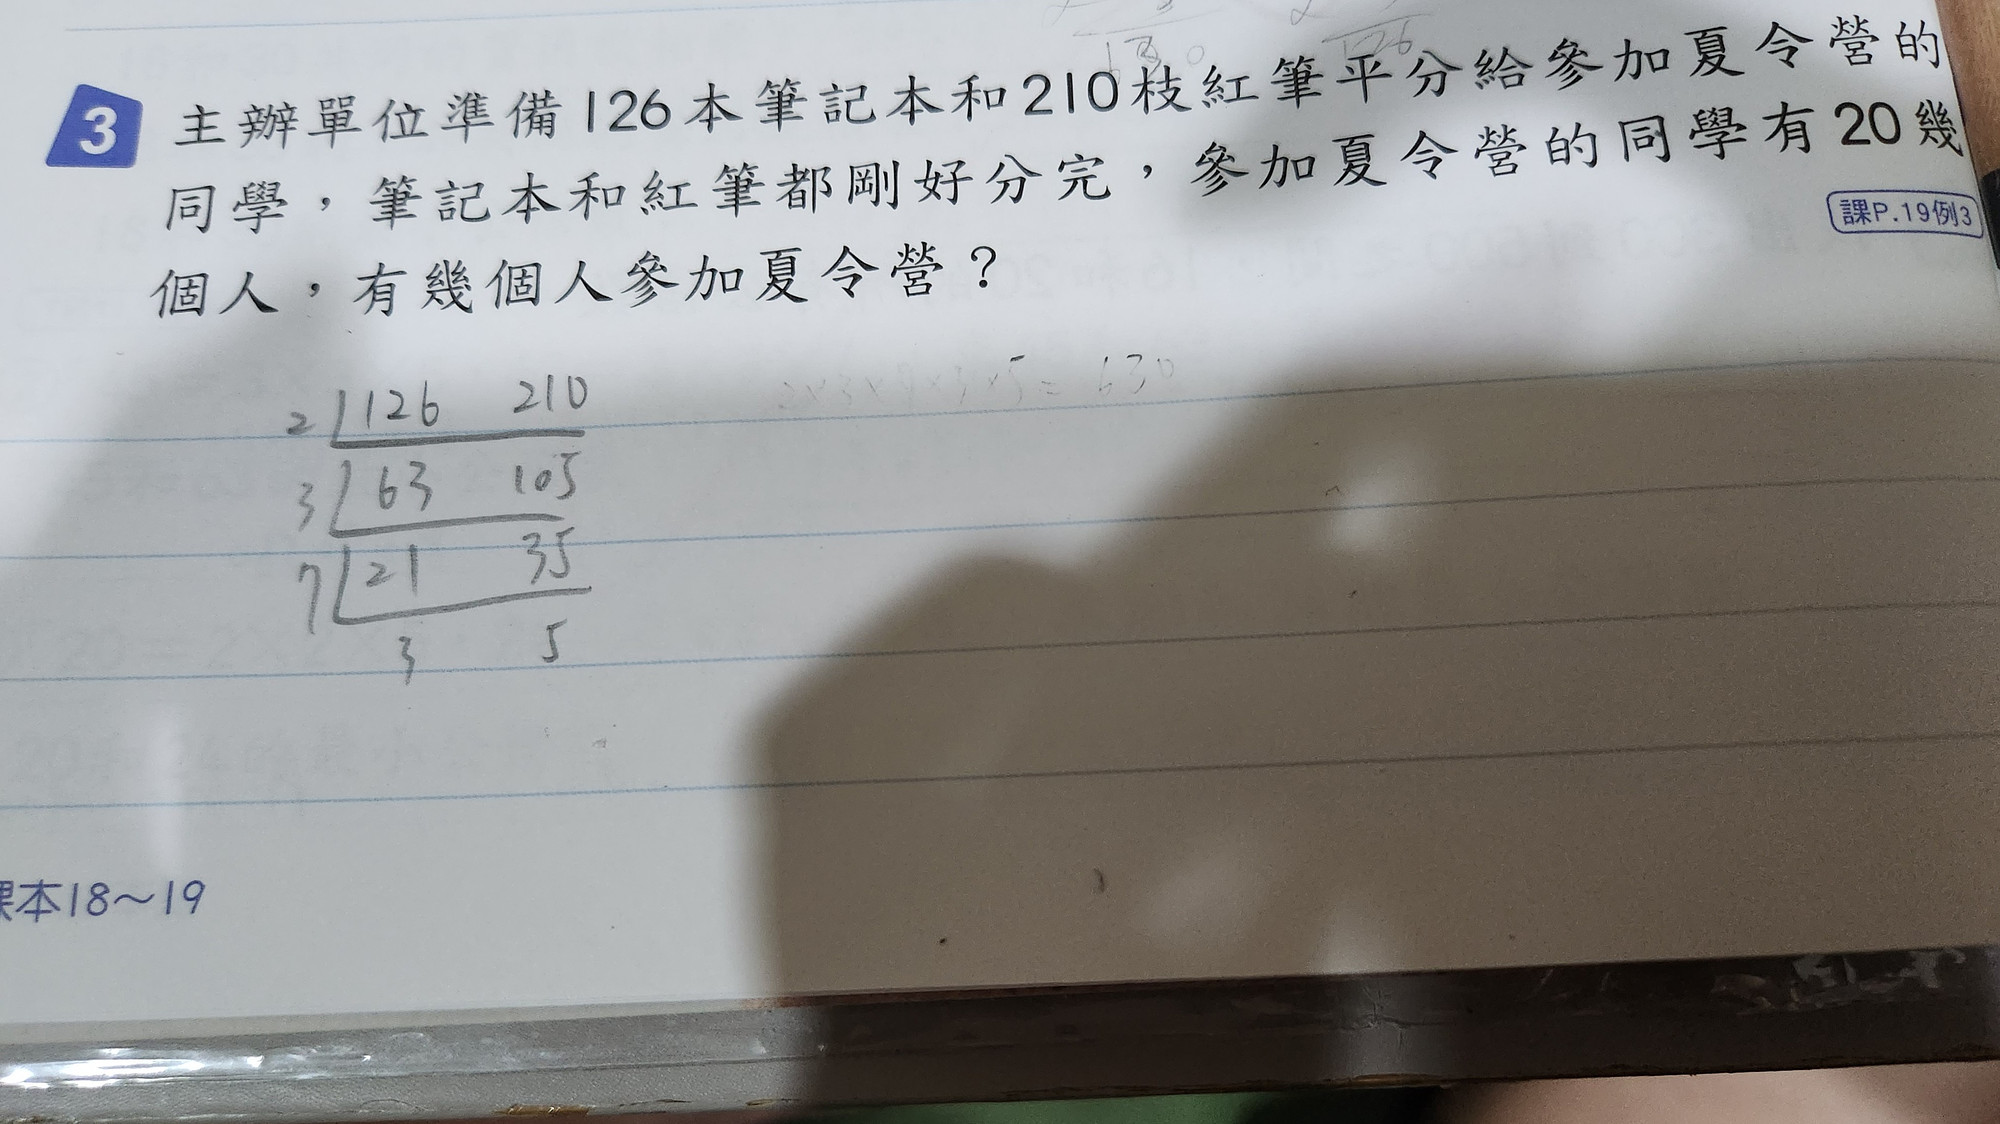 126
3 主辦單位準備126本筆記本和210枝紅筆平分給參加夏令營的
同學，筆記本和紅筆都剛好分完，參加夏令營的同學有20幾
個人，有幾個人參加夏令營？
課P.19例3
2 126 210
3 63 105
7 21 35
3 5
=630
課本18～19